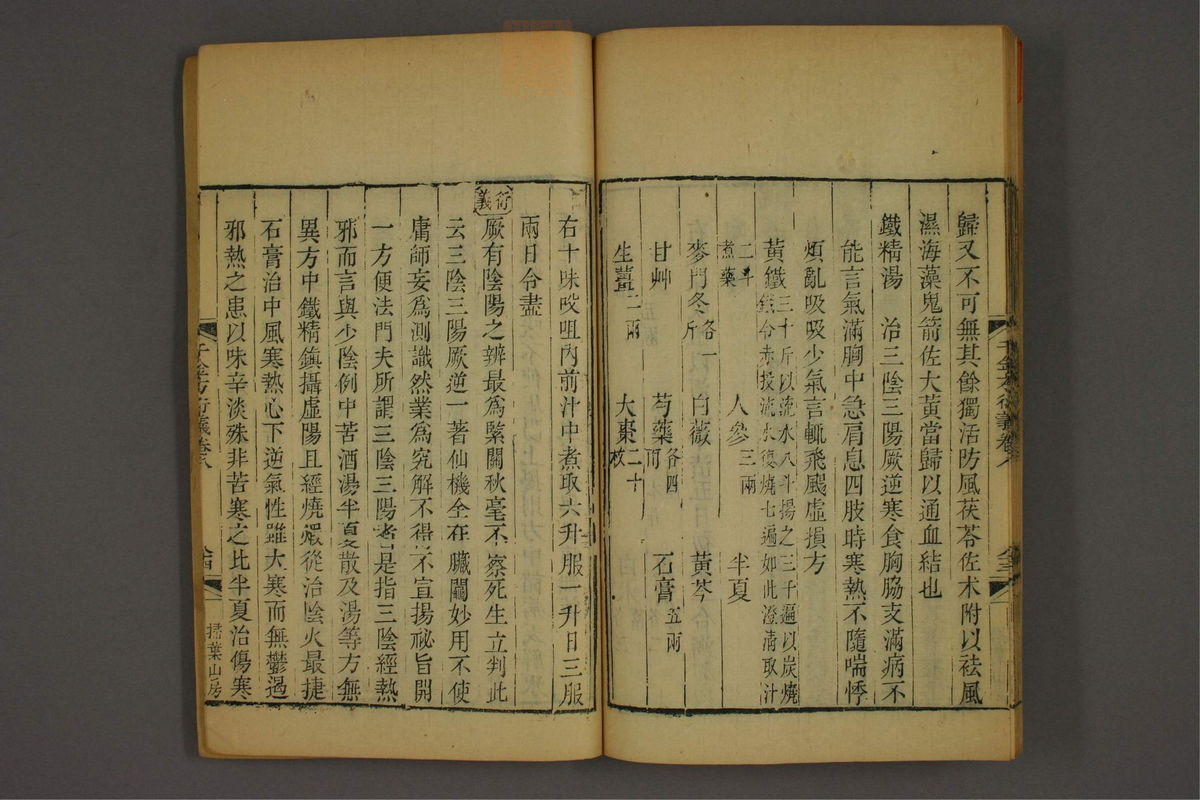 歸又不可無其餘獨活防風茯苓佐术附以祛風
濕海藻鬼箭佐大黃當歸以通血結也
鐵精湯　治三陰三陽厥逆寒食胸脇支滿病不
能言氣滿胸中急肩息四肢時寒熱不隨喘悸
煩亂吸吸少氣言輒飛颺虛損方
黃鐵三十斤以流水八斗揚之三千遍以炭燒
鐵令赤投流水復燒七遍如此澄清取汁
二斗
煮藥　人參三兩　半夏
麥門冬各一
斤　白薇　黃芩
甘艸　芍藥各四
兩　石膏五兩
生薑二兩　大棗二十
枚
千金方衍義卷八
右十味㕮咀內前汁中煮取六升服一升日三服
兩日令盡
衍義
厥有陰陽之辨最爲緊關秋毫不察死生立判此
云三陰三陽厥逆一著仙機全在臟關妙用不使
庸師妄爲測識然業爲究解不得不宣揚祕旨開
一方便法門夫所謂三陰三陽者是指三陰經熱
邪而言與少陰例中苦酒湯半夏散及湯等方無
異方中鐵精鎮攝虛陽且經燒煅從治陰火最捷
石膏治中風寒熱心下逆氣性雖大寒而無鬱遏
邪熱之患以味辛淡殊非苦寒之比半夏治傷寒
千金方衍義卷八
掃葉山房